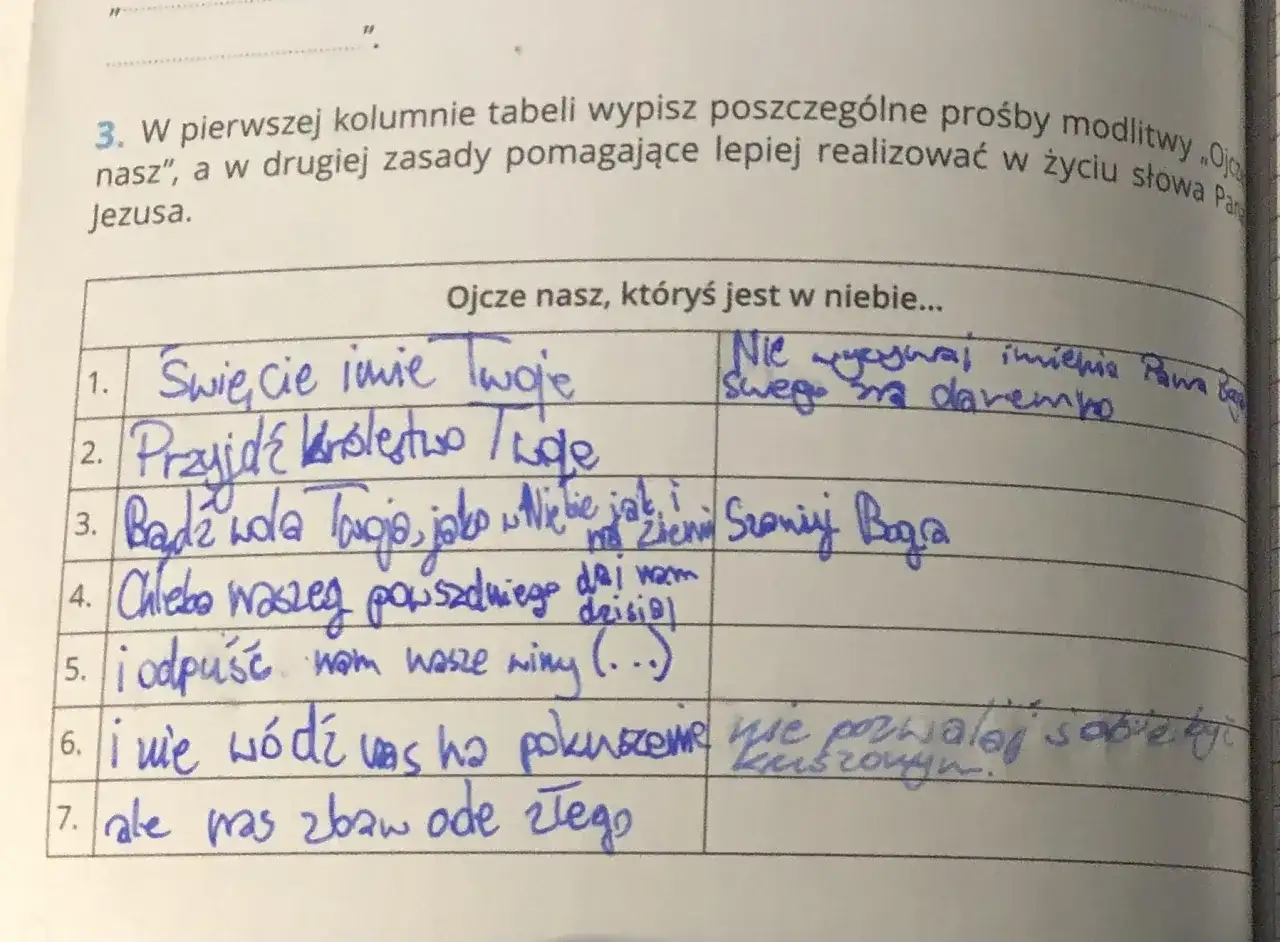 "
".
3. W pierwszej kolumnie tabeli wypisz poszczególne prośby modlitwy „Ojcz
nasz", a w drugiej zasady pomagające lepiej realizować w życiu słowa Pan
Jezusa.
Ojcze nasz, któryś jest w niebie...
1. Święcie imie Twoje Nie wzywaj imienia Pana Bog
swego na daremno
2. Przyjdź królestwo Twoje
3. Bądź wola Twoja, jako w Niebie jak i
na Ziemi Szanuj Boga
4. Chleba naszeg powszdniego daj nam
dzisiaj
5. i odpuść nam nasze winy (...)
6. i nie wódź nas na pokuszenie nie pozwalaj sobie być
kuszonym.
7. ale nas zbaw ode złego